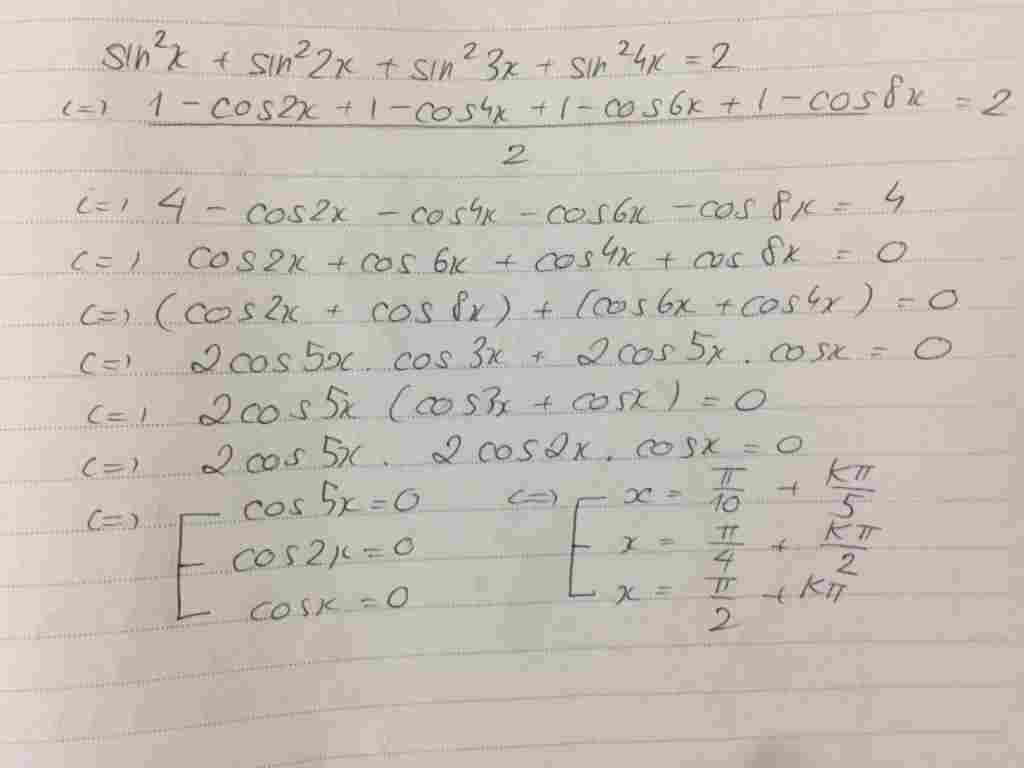 sin²x + sin²2x + sin²3x + sin²4x = 2
<=> (1 - cos2x + 1 - cos4x + 1 - cos6x + 1 - cos8x)/2 = 2
<=> 4 - cos2x - cos4x - cos6x - cos8x = 4
<=> cos2x + cos6x + cos4x + cos8x = 0
<=> (cos2x + cos8x) + (cos6x + cos4x) = 0
<=> 2cos5x. cos3x + 2cos5x. cosx = 0
<=> 2cos5x (cos3x + cosx) = 0
<=> 2cos5x. 2cos2x. cosx = 0
<=> [ cos5x = 0 <=> [ x = π/10 + kπ/5
cos2x = 0 x = π/4 + kπ/2
cosx = 0 x = π/2 + kπ